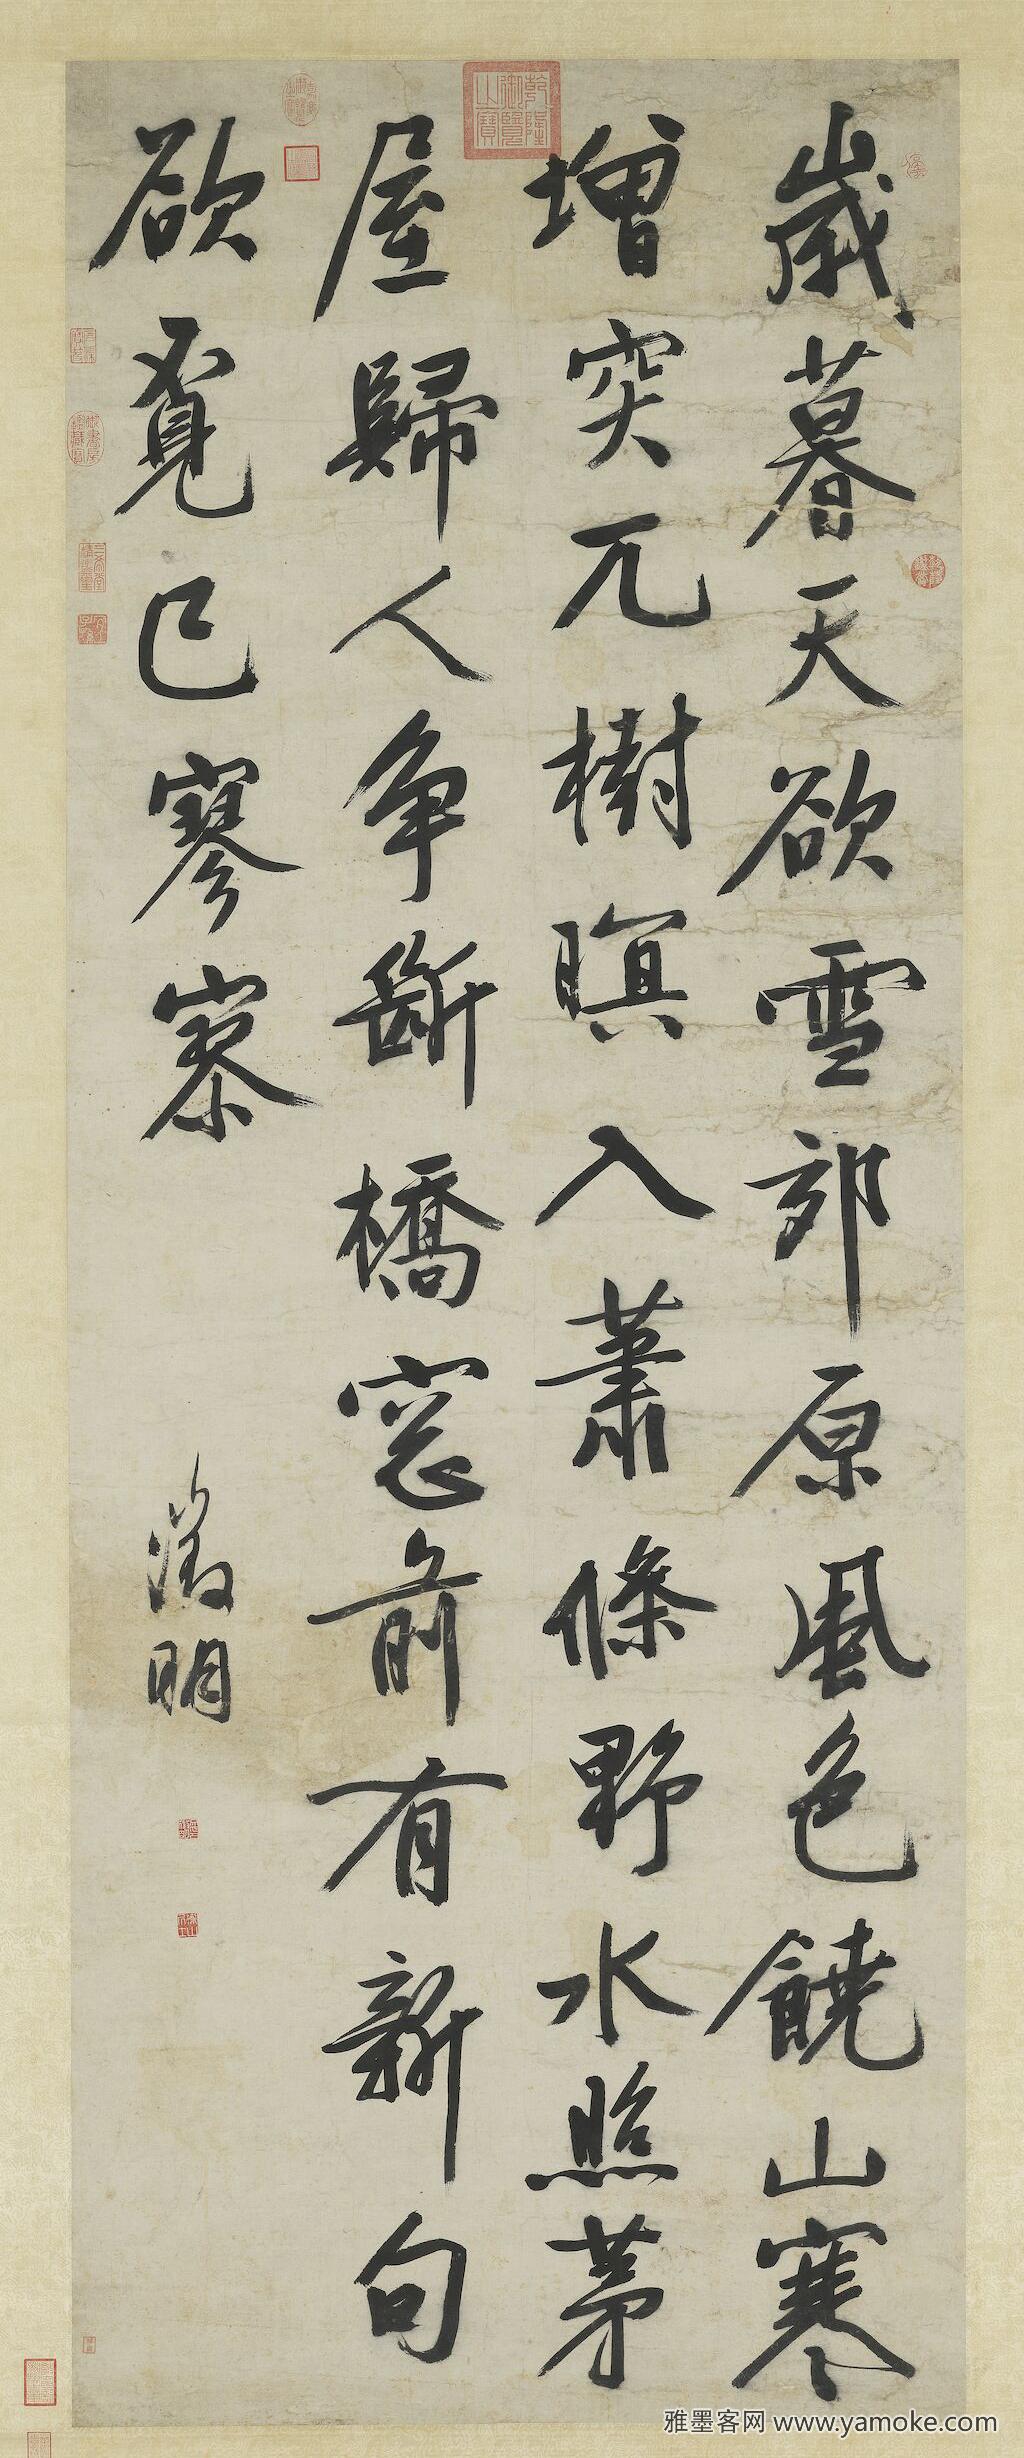 歲暮天欲雪郊原風色饒山寒
增突兀樹暝入蕭條野水照茅
屋歸人争斷橋窓前有新句
欲覔已寥寥
徵明
乾隆御覽之寶
雅墨客网 www.yamoke.com